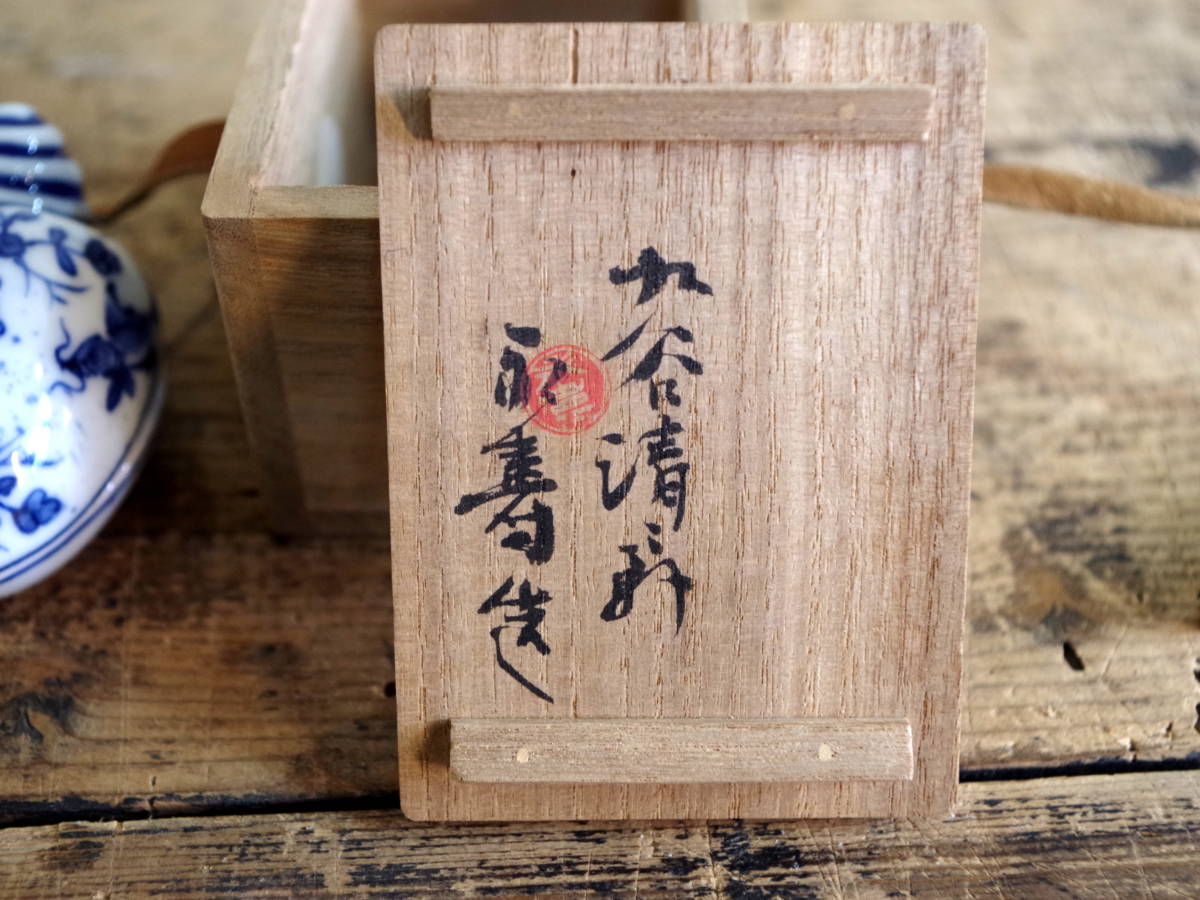 九谷清
永寿造